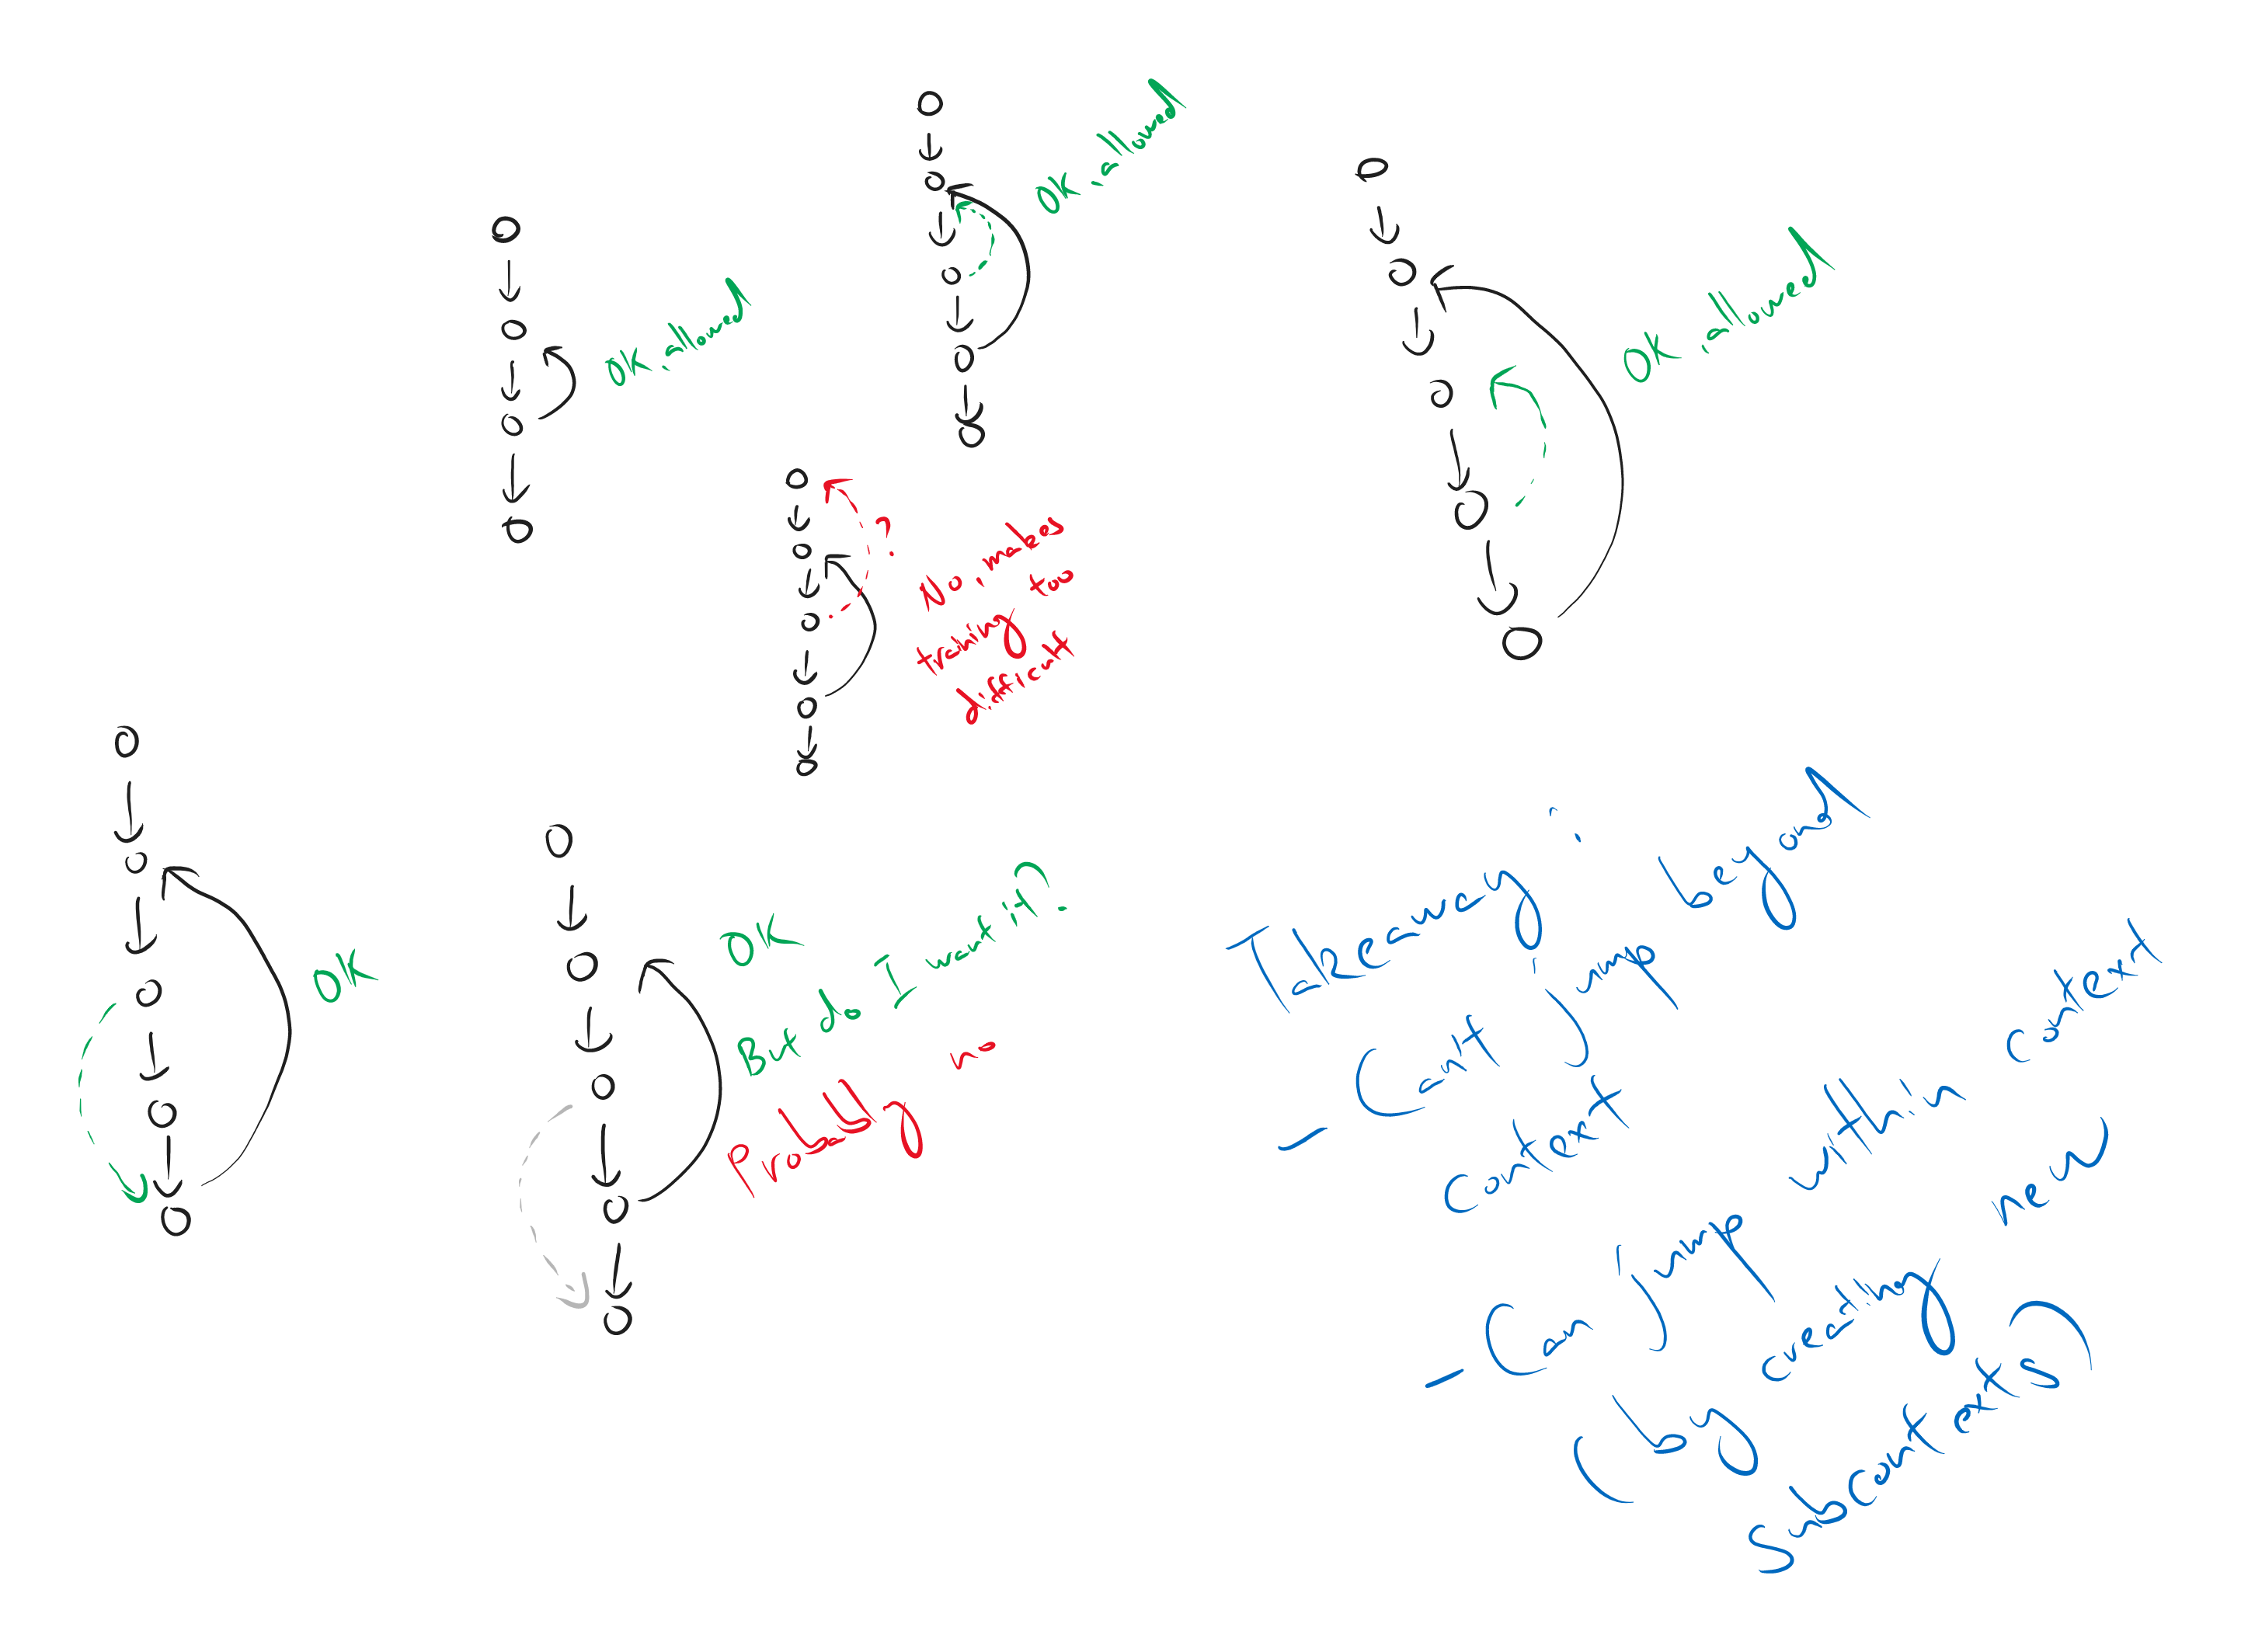 OK, allowed
OK, allowed
OK, allowed
?
No, makes
training too
difficult
OK
OK
But do I want it?
Probably no
Takeaway:
- Can't jump beyond
context
- Can jump within context
(by creating new
subcontexts)